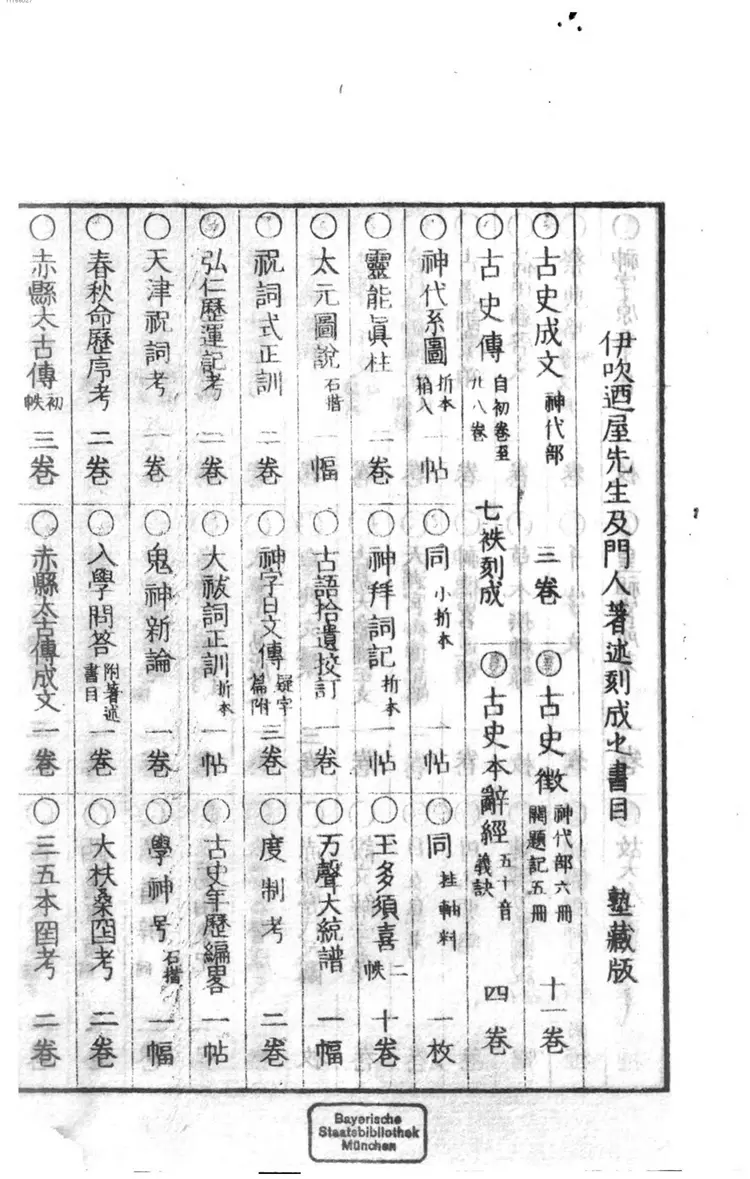 伊吹廼屋先生及門人著述刻成之書目 塾藏版
○古史成文 神代部 三卷 ○古史徵 神代部六冊 開題記五冊 十一卷
○古史傳 自初卷至廿八卷 七袟刻成 ○古史本辭經 五十音義訣 四卷
○神代系圖 折本箱入 一帖 ○同 小折本 一帖 ○同 挂軸料 一枚
○靈能眞柱 二卷 ○神拜詞記 折本 一帖 ○玉多須喜 二帙 十卷
○太元圖說 石摺 一幅 ○古語拾遺挍訂 一卷 ○万聲大統譜 一幅
○祝詞式正訓 二卷 ○神字日文傳 疑字篇附 三卷 ○度制考 二卷
○弘仁歷運記考 二卷 ○大祓詞正訓 折本 一帖 ○古史年歷編畧 一帖
○天津祝詞考 一卷 ○鬼神新論 一卷 ○學神号 石摺 一幅
○春秋命歷序考 二卷 ○入學問答 附著述書目 一卷 ○大扶桑囶考 二卷
○赤縣太古傳 初帙 三卷 ○赤縣太古傳成文 一卷 ○三五本囶考 二卷
Bayerische
Staatsbibliothek
München